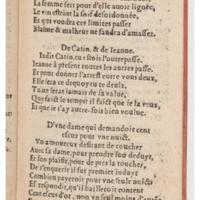 La femme sert pour d'elle auoir lignée,
Le vin estint la soif desordonnée,
Et qui voudra ces limites passer
Blasme & malheur ne faudra d'amasser.
De Catin, & de Ieanne.
Iadis Catin, tu estois l'outrepasse.
Ieanne à present toutes les autres passe,
Et pour donner l'arrest entre vous deux,
Elle sera de quoy tu te deuls.
Tu ne seras iamais de sa value,
Que faict le temps? il faict que ie la veux,
Et que ie t'ay autre-fois bien voulue.
D'vne dame qui demandoit cent
escus pour vne nuict.
Vn amoureux desirant de coucher
Auec sa dame, pour prendre son deduyt,
Et son plaisir, pour de pres la toucher,
De s'enquerir il fut premier induyt
Combien payeroit pour vne seule nuict:
Et respondit, qu'il bailleroit content
Cent escus d'or, non vn seul moins